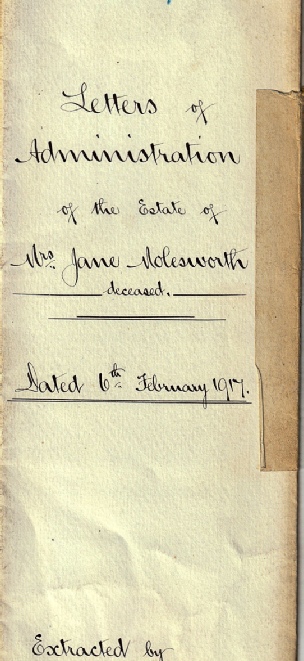 Letters of
Administration
of the Estate of
Mrs. Jane Molesworth
deceased.
Dated 6th February 1917.
Extracted by